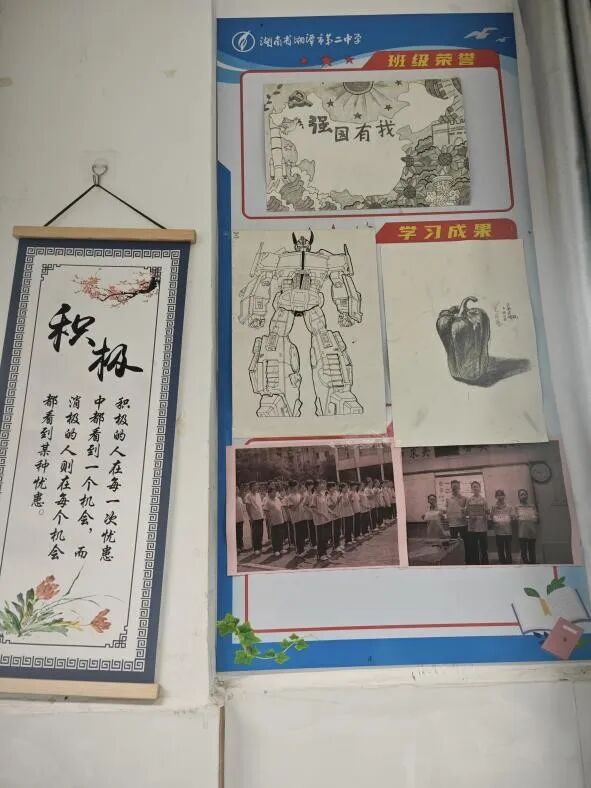 积极
积极的人在每一次忧患
中都看到一个机会，而
消极的人则在每个机会
都看到某种忧患。
湖南省湘潭市第二中学
班级荣誉
强国有我
学习成果